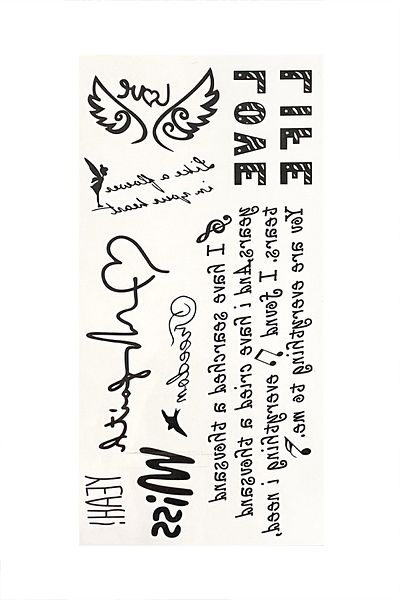 Love
LOVE
LIFE
Like a flower
in your heart
I have searched a thousand
years, And i have cried a thousand
tears. I found everything i need,
You are everything to me.
Freedom
faith
Miss
YEAH!